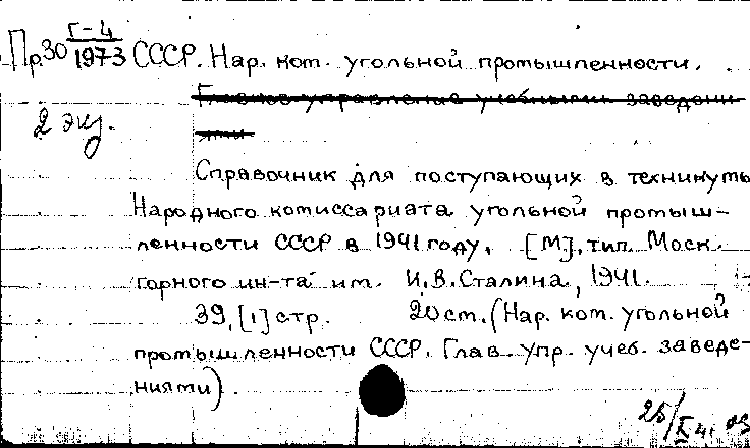 Пр.30 Г-4/1973 СССР. Нар. ком. угольной промышленности.
Главное управление учебными заведени-
ями
2 экз.
Справочник для поступающих в техникумы
Народного комиссариата угольной промыш-
ленности СССР в 1941 году. [М], тип. Моск.
горного ин-та им. И.В. Сталина, 1941.
39, [1] стр. 20 см. (Нар. ком. угольной
промышленности СССР. Глав. упр. учеб. заведе-
ниями)
25/X 41